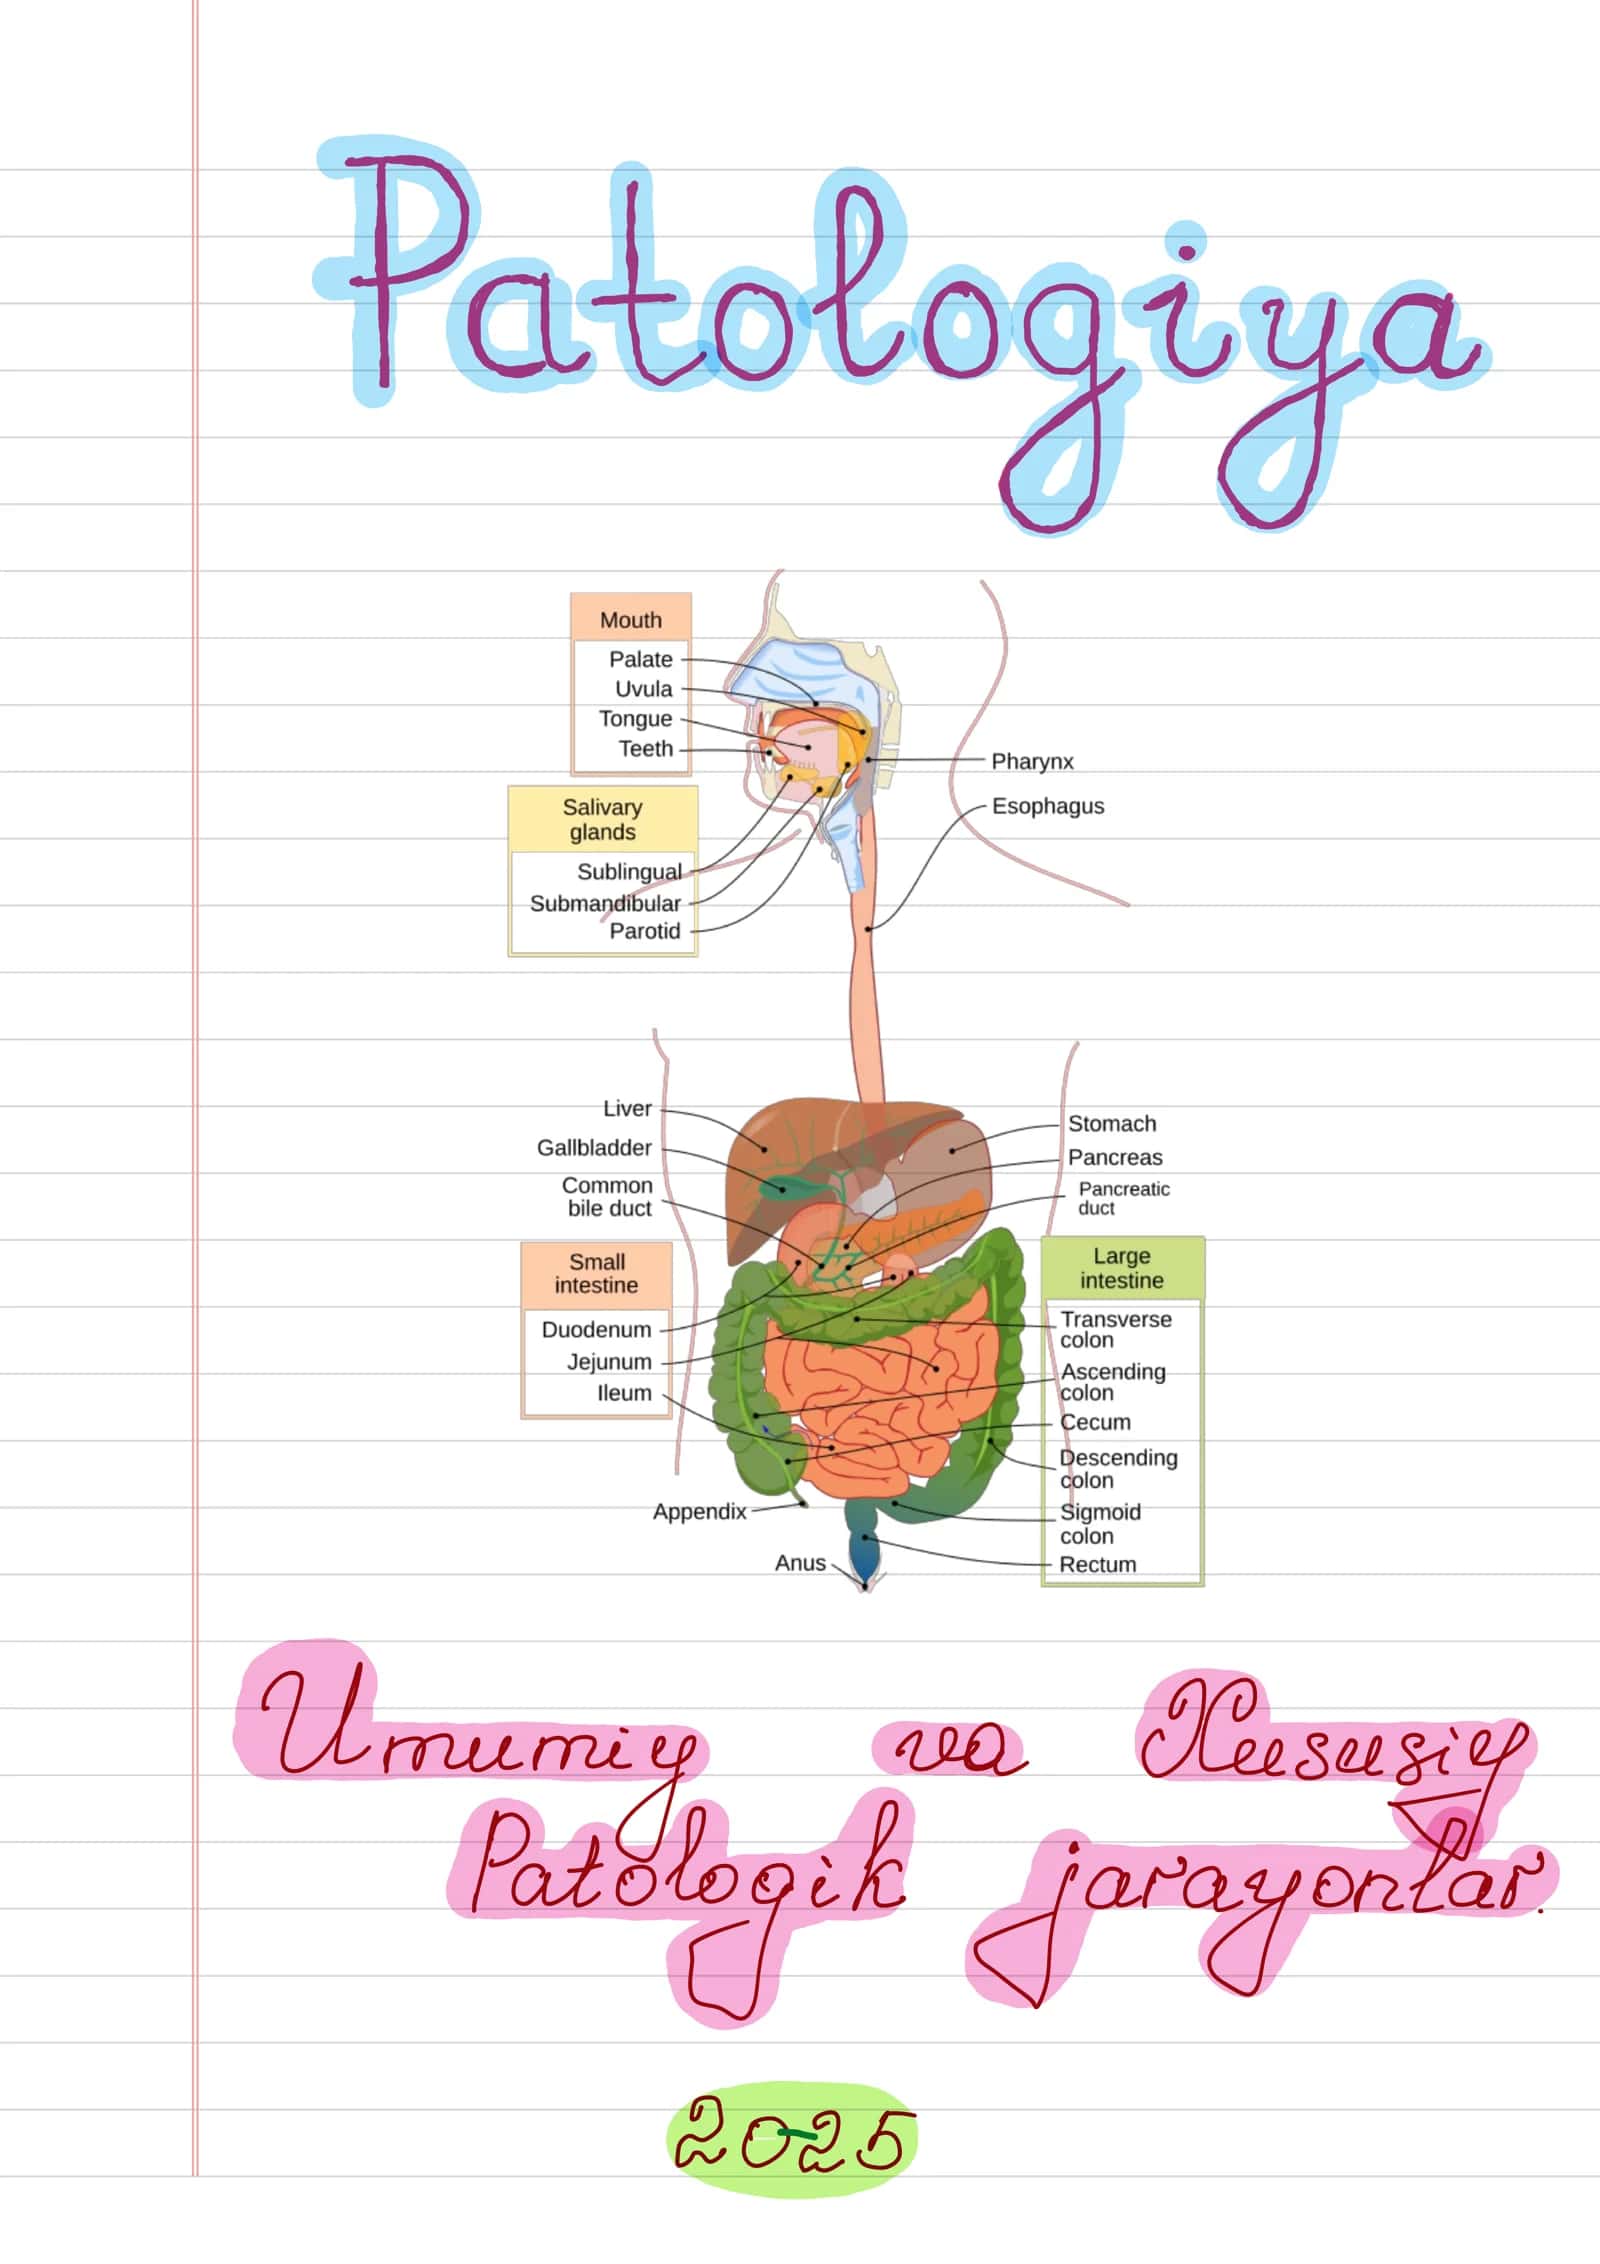 Patologiya
Mouth
Palate
Uvula
Tongue
Teeth
Salivary
glands
Sublingual
Submandibular
Parotid
Pharynx
Esophagus
Liver
Gallbladder
Common
bile duct
Stomach
Pancreas
Pancreatic
duct
Small
intestine
Duodenum
Jejunum
Ileum
Large
intestine
Transverse
colon
Ascending
colon
Cecum
Descending
colon
Sigmoid
colon
Rectum
Appendix
Anus
Umumiy va Xususiy
Patologik jarayonlar.
2025